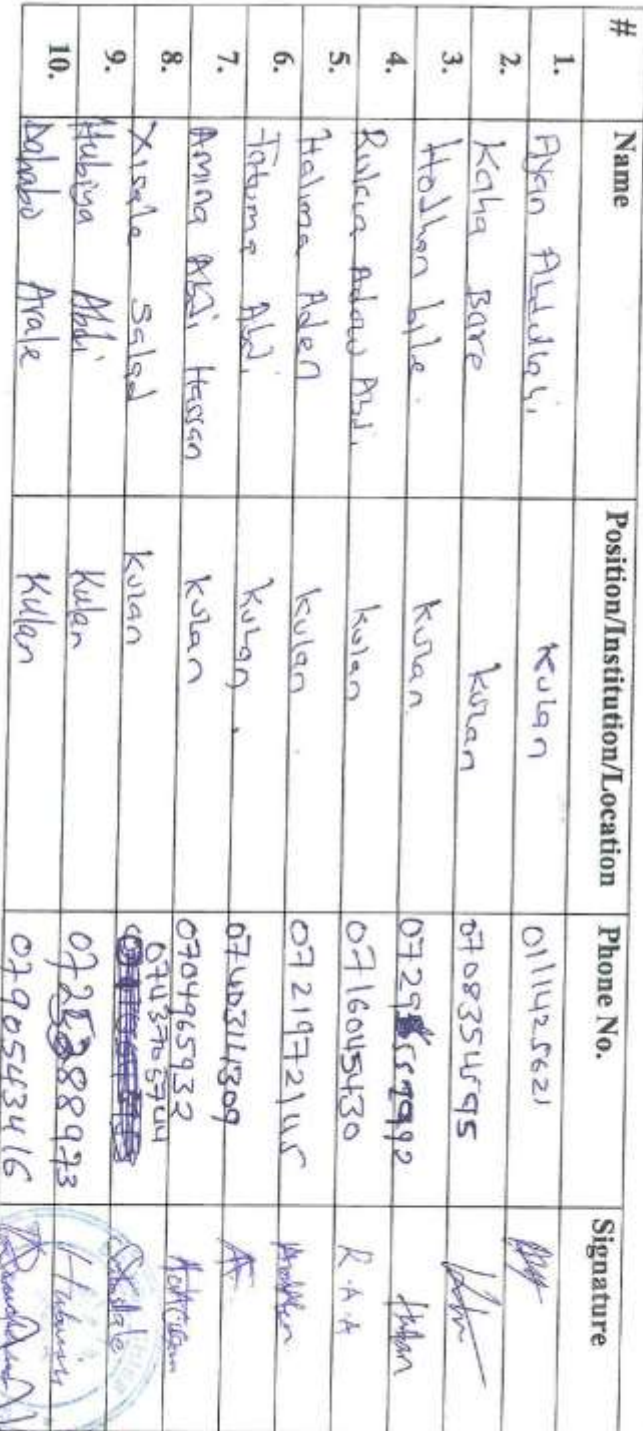 # Name Position/Institution/Location Phone No. Signature
1. Ayan Abdullahi Kulan 0111425621
2. Kaha Bare Kulan 0708354595
3. Hodhan bile. Kulan 0729 Huban
4. Rukia Adow Abdi Kulan 0716045430 R.A.A
5. Halima Aden Kulan 0721972145
6. Fatuma Abdi Kulan. 0740314309 A
7. Amina Abdi Hassan Kulan 0704965932
8. Xisale Salad Kulan 0743705744
9. Hubiya Abdi Kulan
10. Dahabo Arale Kulan 0790543416